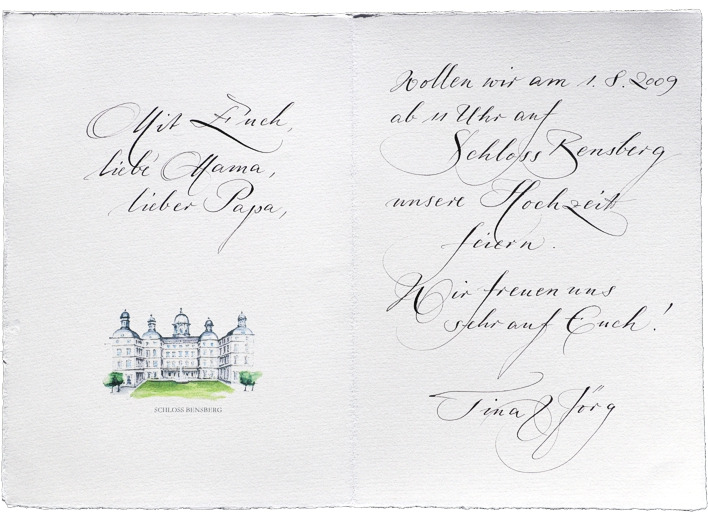 Mit Euch,
liebe Mama,
lieber Papa,
SCHLOSS BENSBERG
wollen wir am 1. 8. 2009
ab 11 Uhr auf
Schloss Bensberg
unsere Hochzeit
feiern.
Wir freuen uns
sehr auf Euch!
Tina & Jörg